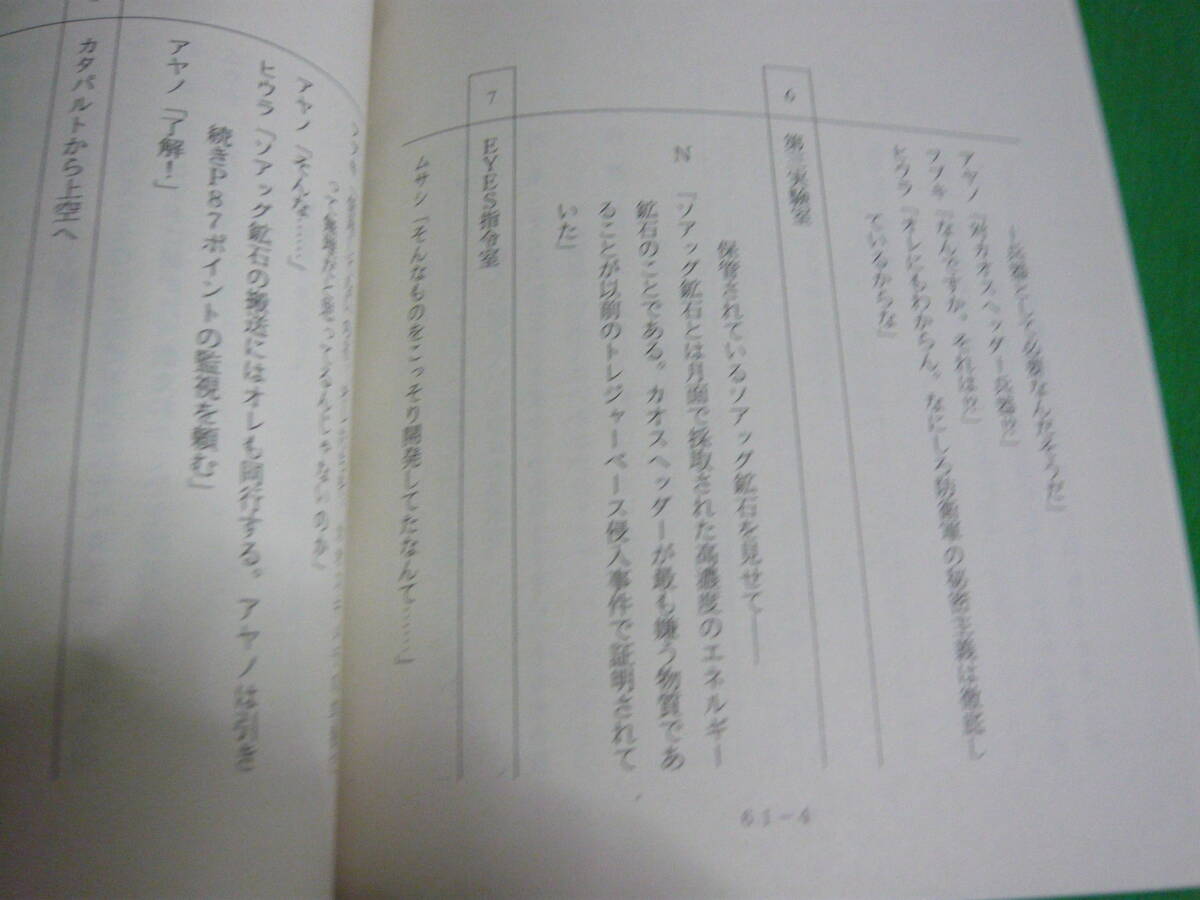 ー兵器として必要なんだそうだ』
アヤノ『対カオスヘッダー兵器!?』
フブキ『なんですか、それは!?』
ヒウラ『オレにもわからん。なにしろ防衛軍の秘密主義は徹底し
ているからな』
6 第三実験室
保管されているソアッグ鉱石を見せて──
N『ソアッグ鉱石とは月面で採取された高濃度のエネルギー
鉱石のことである。カオスヘッダーが最も嫌う物質であ
ることが以前のトレジャーベース侵入事件で証明されて
いた』
7 EYES指令室
ムサシ『そんなものをこっそり開発してたなんて……』
61-4
アヤノ『そんな……』
ヒウラ『ソアッグ鉱石の搬送にはオレも同行する。アヤノは引き
ポイントの監視を頼む』
アヤノ『了解!』
カタパルトから上空へ